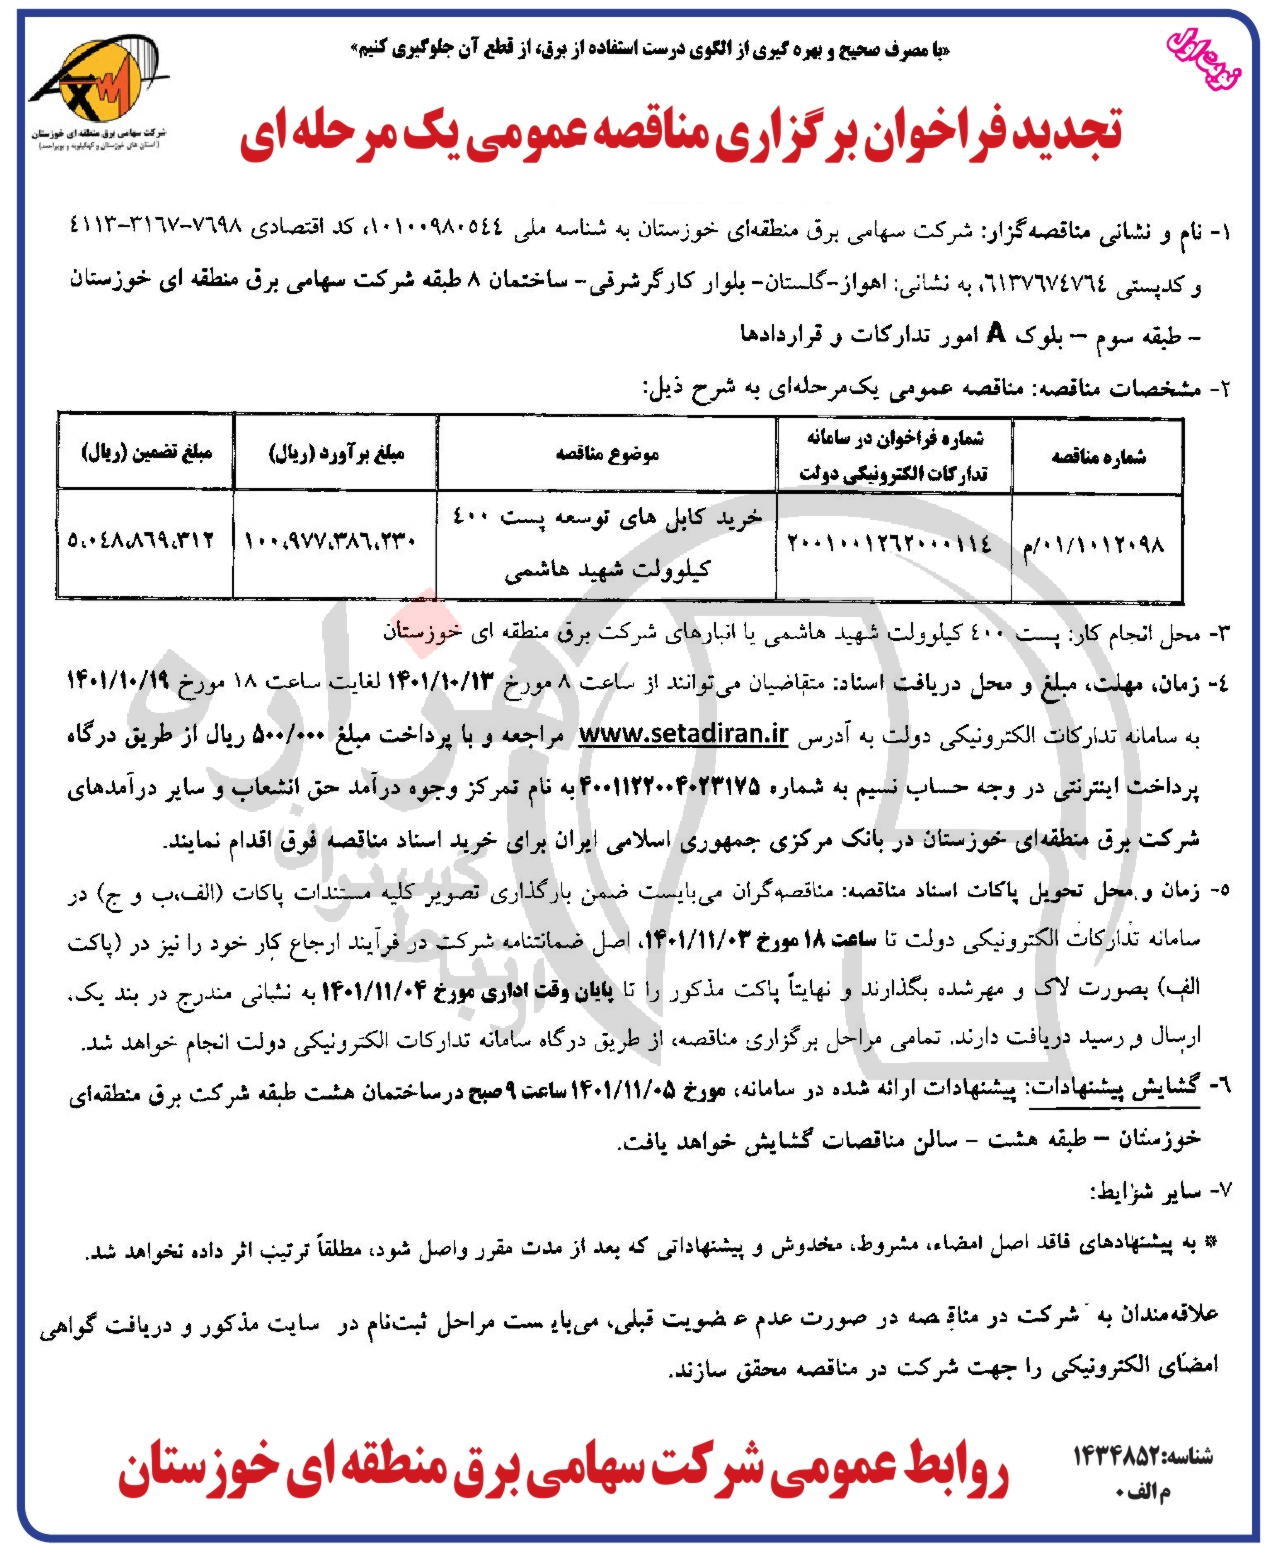 نوبت اول
«با مصرف صحیح و بهره گیری از الگوی درست استفاده از برق، از قطع آن جلوگیری کنیم»
شرکت سهامی برق منطقه ای خوزستان
(استان های خوزستان و کهگیلویه و بویراحمد)
تجدید فراخوان برگزاری مناقصه عمومی یک مرحله ای
۱- نام و نشانی مناقصه‌گزار: شرکت سهامی برق منطقه‌ای خوزستان به شناسه ملی ۱۰۱۰۰۹۸۰۵٤٤، کد اقتصادی ۷٦۹۸-۳۱٦۷-٤۱۱۳
و کدپستی ٦۱۳۷٦۷٤۷٦٤، به نشانی: اهواز-گلستان- بلوار کارگرشرقی- ساختمان ۸ طبقه شرکت سهامی برق منطقه ای خوزستان
- طبقه سوم – بلوک A امور تدارکات و قراردادها
۲- مشخصات مناقصه: مناقصه عمومی یک‌مرحله‌ای به شرح ذیل:
شماره مناقصه
شماره فراخوان در سامانه
تدارکات الکترونیکی دولت
موضوع مناقصه
مبلغ برآورد (ریال)
مبلغ تضمین (ریال)
۰۱/۱۰۱۲۰۹۸/م
۲۰۰۱۰۰۱۲٦۲۰۰۰۱۱٤
خرید کابل های توسعه پست ٤۰۰
کیلوولت شهید هاشمی
۱۰۰،۹۷۷،۳۸٦،۲۳۰
۵،۰٤۸،۸٦۹،۳۱۲
۳- محل انجام کار: پست ٤۰۰ کیلوولت شهید هاشمی یا انبارهای شرکت برق منطقه ای خوزستان
٤- زمان، مهلت، مبلغ و محل دریافت اسناد: متقاضیان می‌توانند از ساعت ۸ مورخ ۱۴۰۱/۱۰/۱۳ لغایت ساعت ۱۸ مورخ ۱۴۰۱/۱۰/۱۹
به سامانه تدارکات الکترونیکی دولت به آدرس www.setadiran.ir مراجعه و با پرداخت مبلغ ۵۰۰/۰۰۰ ریال از طریق درگاه
پرداخت اینترنتی در وجه حساب نسیم به شماره ۴۰۰۱۱۲۲۰۰۴۰۲۳۱۷۵ به نام تمرکز وجوه درآمد حق انشعاب و سایر درآمدهای
شرکت برق منطقه‌ای خوزستان در بانک مرکزی جمهوری اسلامی ایران برای خرید اسناد مناقصه فوق اقدام نمایند.
۵- زمان و محل تحویل پاکات اسناد مناقصه: مناقصه‌گران می‌بایست ضمن بارگذاری تصویر کلیه مستندات پاکات (الف،ب و ج) در
سامانه تدارکات الکترونیکی دولت تا ساعت ۱۸ مورخ ۱۴۰۱/۱۱/۰۳، اصل ضمانتنامه شرکت در فرآیند ارجاع کار خود را نیز در (پاکت
الف) بصورت لاک و مهرشده بگذارند و نهایتاً پاکت مذکور را تا پایان وقت اداری مورخ ۱۴۰۱/۱۱/۰۴ به نشانی مندرج در بند یک،
ارسال و رسید دریافت دارند. تمامی مراحل برگزاری مناقصه، از طریق درگاه سامانه تدارکات الکترونیکی دولت انجام خواهد شد.
٦- گشایش پیشنهادات: پیشنهادات ارائه شده در سامانه، مورخ ۱۴۰۱/۱۱/۰۵ ساعت ۹ صبح درساختمان هشت طبقه شرکت برق منطقه‌ای
خوزستان – طبقه هشت - سالن مناقصات گشایش خواهد یافت.
۷- سایر شرایط:
* به پیشنهادهای فاقد اصل امضاء، مشروط، مخدوش و پیشنهاداتی که بعد از مدت مقرر واصل شود، مطلقاً ترتیب اثر داده نخواهد شد.
علاقه‌مندان به شرکت در مناقصه در صورت عدم عضویت قبلی، می‌بایست مراحل ثبت‌نام در سایت مذکور و دریافت گواهی
امضای الکترونیکی را جهت شرکت در مناقصه محقق سازند.
شناسه:۱۴۳۴۸۵۲
م الف ۰
روابط عمومی شرکت سهامی برق منطقه ای خوزستان